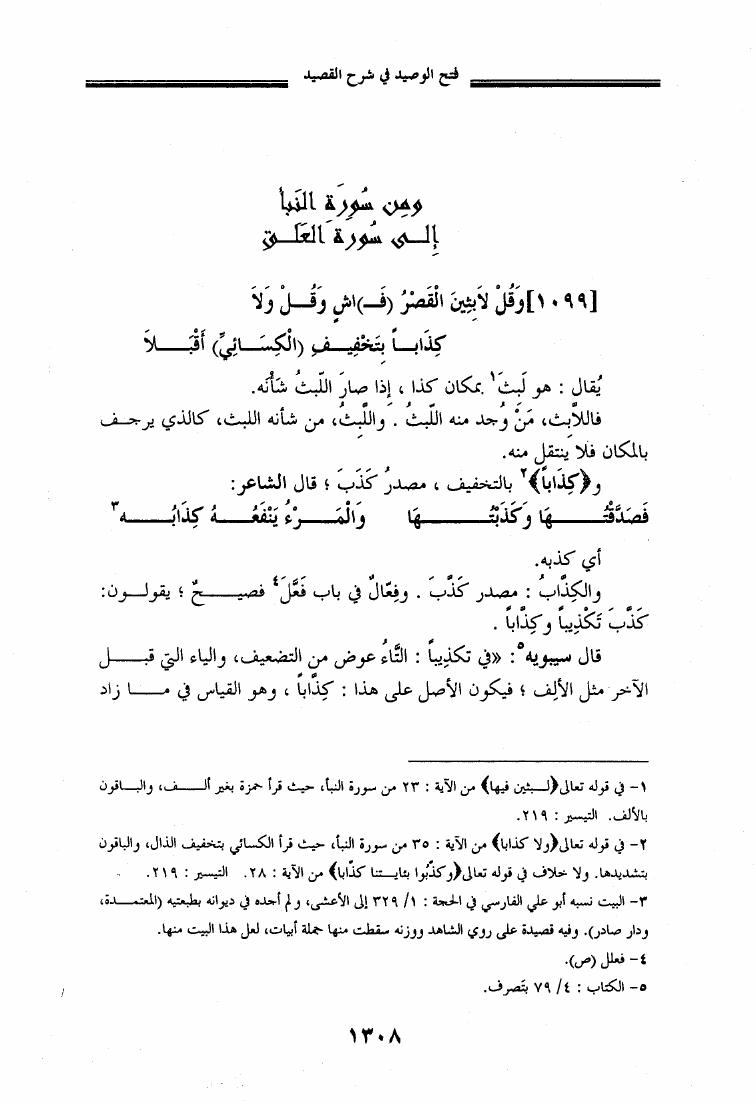 فتح الوصيد في شرح القصيد
ومِن سُورَة النَبأ
إلى سُورة العَلَق
[١٠٩٩] وَقُلْ لاَبِثِينَ الْقَصْرُ (فَـ)اشٍ وَقُلْ وَلاَ
كِذَاباً بِتَخْفِيفِ (الْكِسَائِيِّ) أَقْبَلاَ
يُقال : هو لَبِثَ¹ بمكان كذا ، إذا صارَ اللَّبثُ شَأنَه.
فاللاَّبِث، مَنْ وُجد منه اللَّبثُ . واللَّبِثُ، من شأنه اللبث، كالذي يرجحف
بالمكان فلا ينتقل منه.
و﴿كِذَاباً﴾² بالتخفيف ، مصدرُ كَذَبَ ؛ قال الشاعر:
فَصَدَقْتُهَا وَكَذَبْتُهَا وَالْمَرْءُ يَنْفَعُهُ كِذَابُه³
أي كذبه.
والكِذَّابُ : مصدر كَذَّبَ . وفِعَّالٌ في باب فَعَّلَ⁴ فصيحٌ ؛ يقولون:
كَذَّبَ تَكْذِيباً وكِذَّاباً .
قال سيبويه⁵: «في تكذيباً : التَّاءُ عوض من التضعيف، والياء التي قبل
الآخر مثل الألِف ؛ فيكون الأصل على هذا : كِذَّاباً ، وهو القياس في ما زاد
١- في قوله تعالى﴿لـبثين فيها﴾ من الآية : ٢٣ من سورة النبأ، حيث قرأ حمزة بغير ألف، والباقون
بالألف. التيسير : ٢١٩.
٢- في قوله تعالى﴿ولا كذابا﴾ من الآية : ٣٥ من سورة النبأ، حيث قرأ الكسائي بتخفيف الذال، والباقون
بتشديدها. ولا خلاف في قوله تعالى﴿وكذّبوا بئايـتنا كذّابا﴾ من الآية : ٢٨. التيسير : ٢١٩.
٣- البيت نسبه أبو علي الفارسي في الحجة : ١/ ٣٢٩ إلى الأعشى، ولم أجده في ديوانه بطبعتيه (المعتمدة،
ودار صادر). وفيه قصيدة على روي الشاهد ووزنه سقطت منها جملة أبيات، لعل هذا البيت منها.
٤- فعلل (ص).
٥- الكتاب : ٤/ ٧٩ بتصرف.
١٣٠٨